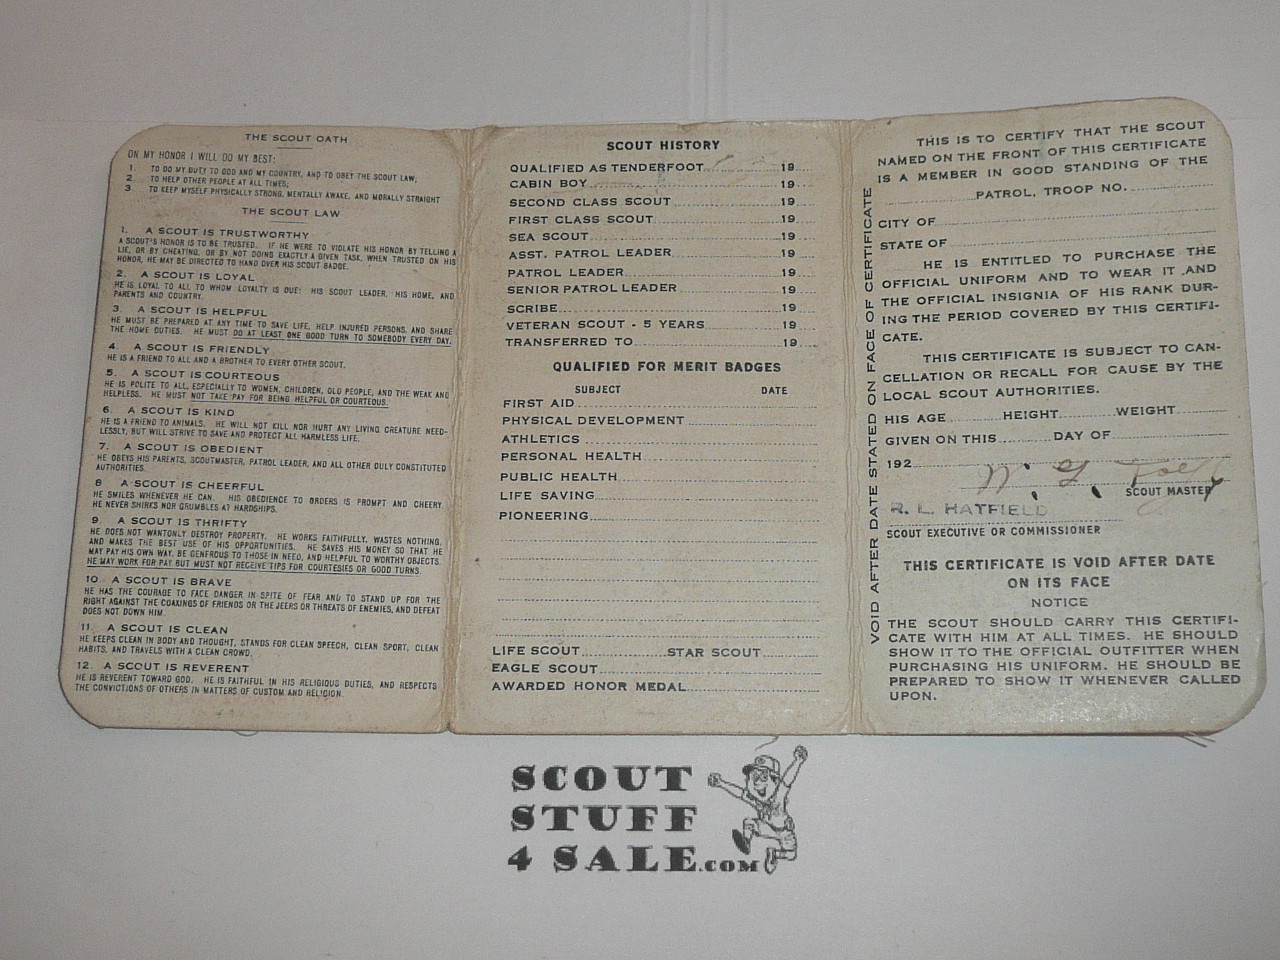 THE SCOUT OATH
ON MY HONOR I WILL DO MY BEST:
1. TO DO MY DUTY TO GOD AND MY COUNTRY, AND TO OBEY THE SCOUT LAW;
2. TO HELP OTHER PEOPLE AT ALL TIMES;
3. TO KEEP MYSELF PHYSICALLY STRONG, MENTALLY AWAKE, AND MORALLY STRAIGHT
THE SCOUT LAW
1. A SCOUT IS TRUSTWORTHY
A SCOUT'S HONOR IS TO BE TRUSTED. IF HE WERE TO VIOLATE HIS HONOR BY TELLING A
LIE, OR BY CHEATING, OR BY NOT DOING EXACTLY A GIVEN TASK, WHEN TRUSTED ON HIS
HONOR, HE MAY BE DIRECTED TO HAND OVER HIS SCOUT BADGE.
2. A SCOUT IS LOYAL
HE IS LOYAL TO ALL TO WHOM LOYALTY IS DUE: HIS SCOUT LEADER, HIS HOME, AND
PARENTS AND COUNTRY.
3. A SCOUT IS HELPFUL
HE MUST BE PREPARED AT ANY TIME TO SAVE LIFE, HELP INJURED PERSONS, AND SHARE
THE HOME DUTIES. HE MUST DO AT LEAST ONE GOOD TURN TO SOMEBODY EVERY DAY.
4. A SCOUT IS FRIENDLY
HE IS A FRIEND TO ALL AND A BROTHER TO EVERY OTHER SCOUT.
5. A SCOUT IS COURTEOUS
HE IS POLITE TO ALL, ESPECIALLY TO WOMEN, CHILDREN, OLD PEOPLE, AND THE WEAK AND
HELPLESS. HE MUST NOT TAKE PAY FOR BEING HELPFUL OR COURTEOUS.
6. A SCOUT IS KIND
HE IS A FRIEND TO ANIMALS. HE WILL NOT KILL NOR HURT ANY LIVING CREATURE NEED-
LESSLY, BUT WILL STRIVE TO SAVE AND PROTECT ALL HARMLESS LIFE.
7. A SCOUT IS OBEDIENT
HE OBEYS HIS PARENTS, SCOUTMASTER, PATROL LEADER, AND ALL OTHER DULY CONSTITUTED
AUTHORITIES.
8 A SCOUT IS CHEERFUL
HE SMILES WHENEVER HE CAN. HIS OBEDIENCE TO ORDERS IS PROMPT AND CHEERY.
HE NEVER SHIRKS NOR GRUMBLES AT HARDSHIPS.
9. A SCOUT IS THRIFTY
HE DOES NOT WANTONLY DESTROY PROPERTY. HE WORKS FAITHFULLY, WASTES NOTHING,
AND MAKES THE BEST USE OF HIS OPPORTUNITIES. HE SAVES HIS MONEY SO THAT HE
MAY PAY HIS OWN WAY, BE GENEROUS TO THOSE IN NEED, AND HELPFUL TO WORTHY OBJECTS.
HE MAY WORK FOR PAY BUT MUST NOT RECEIVE TIPS FOR COURTESIES OR GOOD TURNS.
10. A SCOUT IS BRAVE
HE HAS THE COURAGE TO FACE DANGER IN SPITE OF FEAR AND TO STAND UP FOR THE
RIGHT AGAINST THE COAXINGS OF FRIENDS OR THE JEERS OR THREATS OF ENEMIES, AND DEFEAT
DOES NOT DOWN HIM.
11. A SCOUT IS CLEAN
HE KEEPS CLEAN IN BODY AND THOUGHT, STANDS FOR CLEAN SPEECH, CLEAN SPORT, CLEAN
HABITS, AND TRAVELS WITH A CLEAN CROWD.
12. A SCOUT IS REVERENT
HE IS REVERENT TOWARD GOD. HE IS FAITHFUL IN HIS RELIGIOUS DUTIES, AND RESPECTS
THE CONVICTIONS OF OTHERS IN MATTERS OF CUSTOM AND RELIGION.
SCOUT HISTORY
QUALIFIED AS TENDERFOOT 19
CABIN BOY 19
SECOND CLASS SCOUT 19
FIRST CLASS SCOUT 19
SEA SCOUT 19
ASST. PATROL LEADER 19
PATROL LEADER 19
SENIOR PATROL LEADER 19
SCRIBE 19
VETERAN SCOUT - 5 YEARS 19
TRANSFERRED TO 19
QUALIFIED FOR MERIT BADGES
SUBJECT DATE
FIRST AID
PHYSICAL DEVELOPMENT
ATHLETICS
PERSONAL HEALTH
PUBLIC HEALTH
LIFE SAVING
PIONEERING
LIFE SCOUT STAR SCOUT
EAGLE SCOUT
AWARDED HONOR MEDAL
VOID AFTER DATE STATED ON FACE OF CERTIFICATE
THIS IS TO CERTIFY THAT THE SCOUT
NAMED ON THE FRONT OF THIS CERTIFICATE
IS A MEMBER IN GOOD STANDING OF THE
PATROL, TROOP NO.
CITY OF
STATE OF
HE IS ENTITLED TO PURCHASE THE
OFFICIAL UNIFORM AND TO WEAR IT AND
THE OFFICIAL INSIGNIA OF HIS RANK DUR-
ING THE PERIOD COVERED BY THIS CERTIFI-
CATE.
THIS CERTIFICATE IS SUBJECT TO CAN-
CELLATION OR RECALL FOR CAUSE BY THE
LOCAL SCOUT AUTHORITIES.
HIS AGE HEIGHT WEIGHT
GIVEN ON THIS DAY OF
192
SCOUT MASTER
R. L. HATFIELD
SCOUT EXECUTIVE OR COMMISSIONER
THIS CERTIFICATE IS VOID AFTER DATE
ON ITS FACE
NOTICE
THE SCOUT SHOULD CARRY THIS CERTIFI-
CATE WITH HIM AT ALL TIMES. HE SHOULD
SHOW IT TO THE OFFICIAL OUTFITTER WHEN
PURCHASING HIS UNIFORM. HE SHOULD BE
PREPARED TO SHOW IT WHENEVER CALLED
UPON.
SCOUT
STUFF
4 SALE.COM